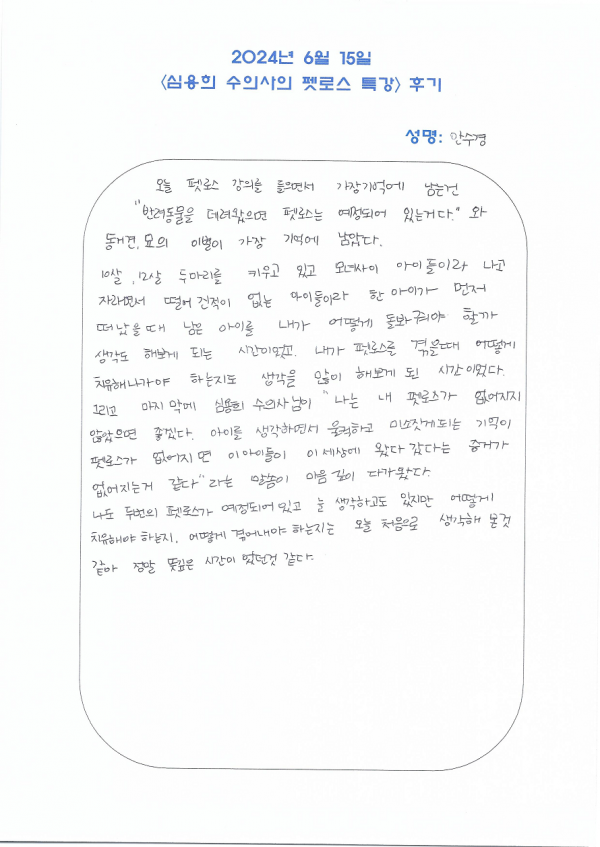 2024년 6월 15일
<심용희 수의사의 펫로스 특강> 후기
성명: 안수경
오늘 펫로스 강의를 들으면서 가장기억에 남는건
"반려동물을 데려왔으면 펫로스는 예정되어 있는거다." 와
동거견,묘의 이별이 가장 기억에 남았다.
10살, 12살 두마리를 키우고 있고 모녀사이 아이들이라 나고
자라면서 떨어진적이 없는 아이들이라 한 아이가 먼저
떠났을때 남은 아이를 내가 어떻게 돌봐줘야 할까
생각도 해보게 되는 시간이었고. 내가 펫로스를 겪을때 어떻게
치유해나가야 하는지도 생각을 많이 해보게 된 시간이었다.
그리고 마지막에 심용희 수의사님이 "나는 내 펫로스가 없어지지
않았으면 좋겠다. 아이를 생각하면서 울컥하고 미소짓게되는 기억이
펫로스가 없어지면 이 아이들이 이세상에 왔다 갔다는 증거가
없어지는거 같다"라는 말씀이 마음 깊이 다가왔다.
나도 두번의 펫로스가 예정되어있고 늘 생각하고도 있지만 어떻게
치유해야 하는지, 어떻게 겪어내야 하는지는 오늘 처음으로 생각해 본것
같아 정말 뜻깊은 시간이 었던것 같다.